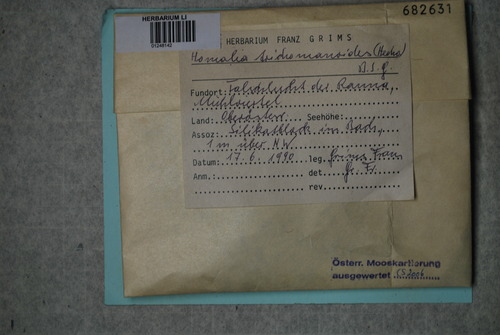 682631
HERBARIUM LI
01248142
HERBARIUM FRANZ GRIMS
Homalia trichomanoides (Hedw.)
B.S.G.
Fundort: Talschlucht der Ranna,
Mühlviertel
Land: Oberösterr. Seehöhe:
Assoz: Silikatblock im Bach,
1 m über MW
Datum: 17.6.1990 leg. Grims Franz
Anm.: det. Gr. Fr.
rev.
Österr. Mooskartierung
ausgewertet